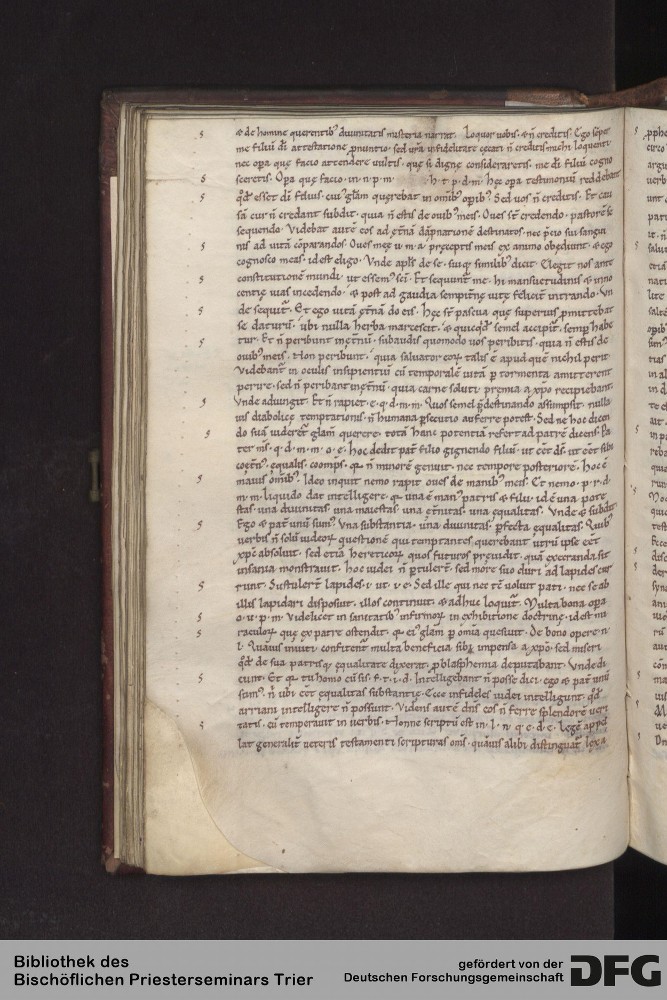 & de homine querentib' divinitatis misteria narrat. Loquor vobis. & n̄ creditis. Ego sēp
me filiū dī attestatione p̄nuntio. sed vr̄a infidelitate cecati n̄ creditis michi loquenti
nec opa quę facio attendere vultis. quę si digne consideraretis. me dī filium cogno
sceretis. Opa quę facio. in. n. p. m. h. t. p. d. m. Hęc opa testimoniū reddebant
qd' esset dī filius. cui' glām querebat in omīb' opib'. Sed vos n̄ creditis. Et cau
sā cur n̄ credant subdit. quia n̄ estis de ovib' meis. Oves st̄ credendo. pastorē
sequendo. Videbat autē eos ad ęt̄nā dāpnatione destinatos. nec p̄cio sui sangui
nis ad vitā cōparandos. Oves meę u. m. a. pręceptis meis ex animo obediunt. & ego
cognosco meas. id est eligo. Unde apls de se. suisq. similib' dicit. Elegit nos ante
constitutionē mundi. ut essem' sc̄i. Et sequunt̄ me. hi mansuetudinis & inno
centię vias incedendo. & post ad gaudia sempitn̄ę vitę feliciter intrando. Un
de sequit̄. Et ego vitā ęt̄nā do eis. Hęc st̄ pascua quę superius pmittebat
se daturū. ubi nulla herba marcescit. & quicqd' semel accipit̄. semp habe
tur. Et n̄ peribunt in ęt̄nū. subaudis quomodo vos peribitis. quia n̄ estis de
ovib' meis. Non peribunt. quia salvator eoꝝ talis ē apud quē nichil perit
Videbant̄ in oculis insipientiū cū temporalē vitā p tormenta amitterent
perire. sed n̄ peribant in ęt̄nū. quia carne soluti. premia a xp̄o recipiebant.
Unde adiungit. Et n̄ rapiet. e. q. d. m. m. Quos semel p̄destinando assumpsit. nulla
vis diabolicę temptationis. n̄ humana p̄secutio auferre potest. Sed ne hoc dicen
do suā videret̄ glām querere. totā hanc potentiā refert ad patrē dicens. Pa
ter m's. q. d. m. m. o. ē. Hoc dedit pat̄ filio gignendo filiū. ut ēet dī. ut ēet sibi
coęt̄n'. equalis. coomps. qr n̄ minorē genuit. nec tempore posteriorē. Hoc ē
maius omīb'. Ideo inquit nemo rapit oves de manib' meis. Et nemo. p. r. d.
m. m. liquido dat̄ intelligere. qr una ē man' patris & filii. id ē una pote
stas. una divinitas. una maiestas. una ęt̄nitas. una equalitas. Unde & subdit̄
Ego & pat̄ unū sum'. Una substantia. una divinitas. pfecta equalitas. Quib'
verbis n̄ solū iudeoꝝ questionē qui temptantes querebant utrū ipse eēt
xp̄c absolvit. sed etiā hereticoꝝ quos futuros previdit. quā execranda sit
insania monstravit. Hoc iudei n̄ ptulert̄. sed more suo duri ad lapides cur
runt. Sustulert̄ lapides. i. ut. i. e. Sed ille qui nec tē voluit pati. nec se ab
illis lapidari disposuit. illos continuit. & adhuc loquit̄. Multa bona opa
o. v. p. m. Videlicet in sanitatib' infirmoꝝ. in exhibitione doctrinę. id est mi
raculoꝝ quę ex patre ostendit. qr ei' glām p omīa quesivit. De bono opere n̄
l. Quāvis inviti confitent̄ multa beneficia sibi impensa a xp̄o. sed miseri
qd' de sua patrisq. equalitate dixerat. p blasphemia deputabant. Unde di
cunt. Et qr tu homo cū sis. f. t. i. d. Intelligebant n̄ posse dici. ego & pat̄ unū
sum'. n̄ ubi eēt equalitas substantię. Ecce infideles iudei intelligunt. qd'
arriani intelligere n̄ possunt. Videns autē dn̄s eos n̄ ferre splendorē veri
tatis. eū temperavit in verbis. Nonne scriptū est in. l. n̄. q. e. d. e. Legē appel
lat generalit̄ veteris testamenti scripturas om̄s. quāvis alibi distinguat̄ lex a
Bibliothek des
Bischöflichen Priesterseminars Trier
gefördert von der
Deutschen Forschungsgemeinschaft
DFG